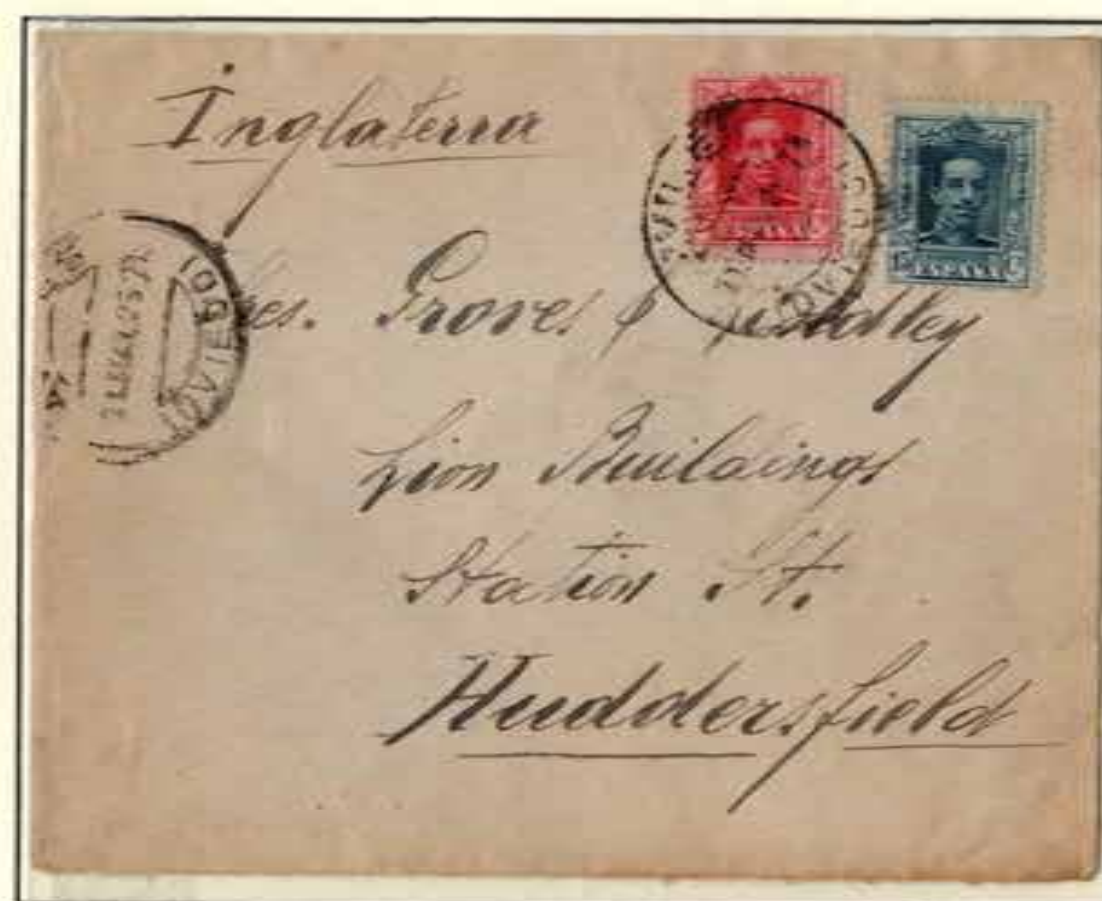 Inglaterra
ESPAÑA
15 ESPAÑA
OVIEDO
Groves & Lindley
Lion Buildings
Station St.
Huddersfield